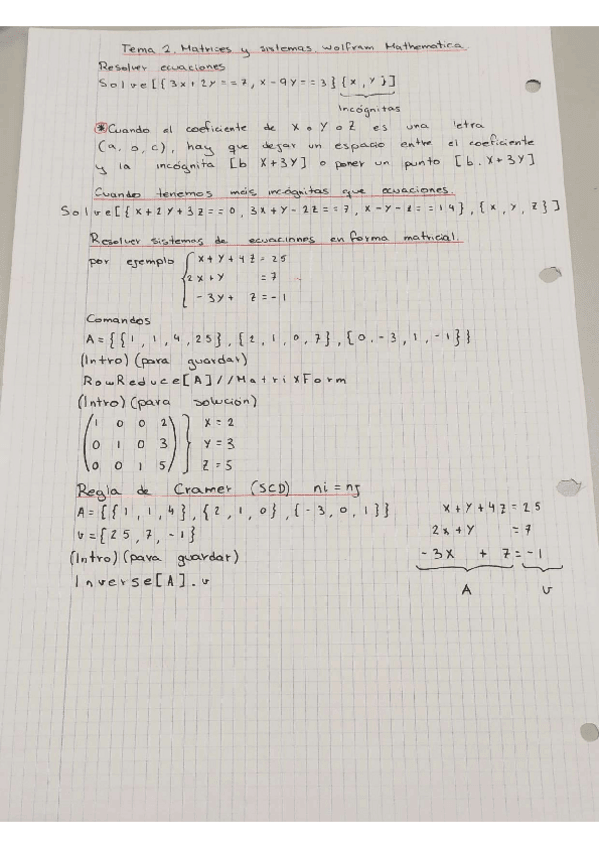 Tema 2. Matrices y sistemas Wolfram Mathematica
Resolver ecuaciones
Solve[{3x+2y==7, x-9y==3}{x,y}]
Incógnitas
*Cuando el coeficiente de x o y o z es una letra
(a, b, c), hay que dejar un espacio entre el coeficiente
y la incógnita [b x+3y] o poner un punto [b.x+3y]
Cuando tenemos más incógnitas que ecuaciones.
Solve[{x+2y+3z==0, 3x+y-2z==7, x-y-z==14},{x,y,z}]
Resolver sistemas de ecuacinnes en forma matricial.
por ejemplo { x+y+4z=25
2x+y =7
-3y+ z=-1
Comandos
A={{1,1,4,25},{2,1,0,7},{0,-3,1,-1}}
(Intro)(para guardar)
RowReduce[A]//MatrixForm
(Intro)(para solución)
(1 0 0 2) x=2
(0 1 0 3) } y=3
(0 0 1 5) z=5
Regla de Cramer (SCD) ni=ns
A={{1,1,4},{2,1,0},{-3,0,1}}
v={25,7,-1}
(Intro)(para guardar)
Inverse[A].v
x+y+4z=25
2x+y =7
-3x + z=-1
A v